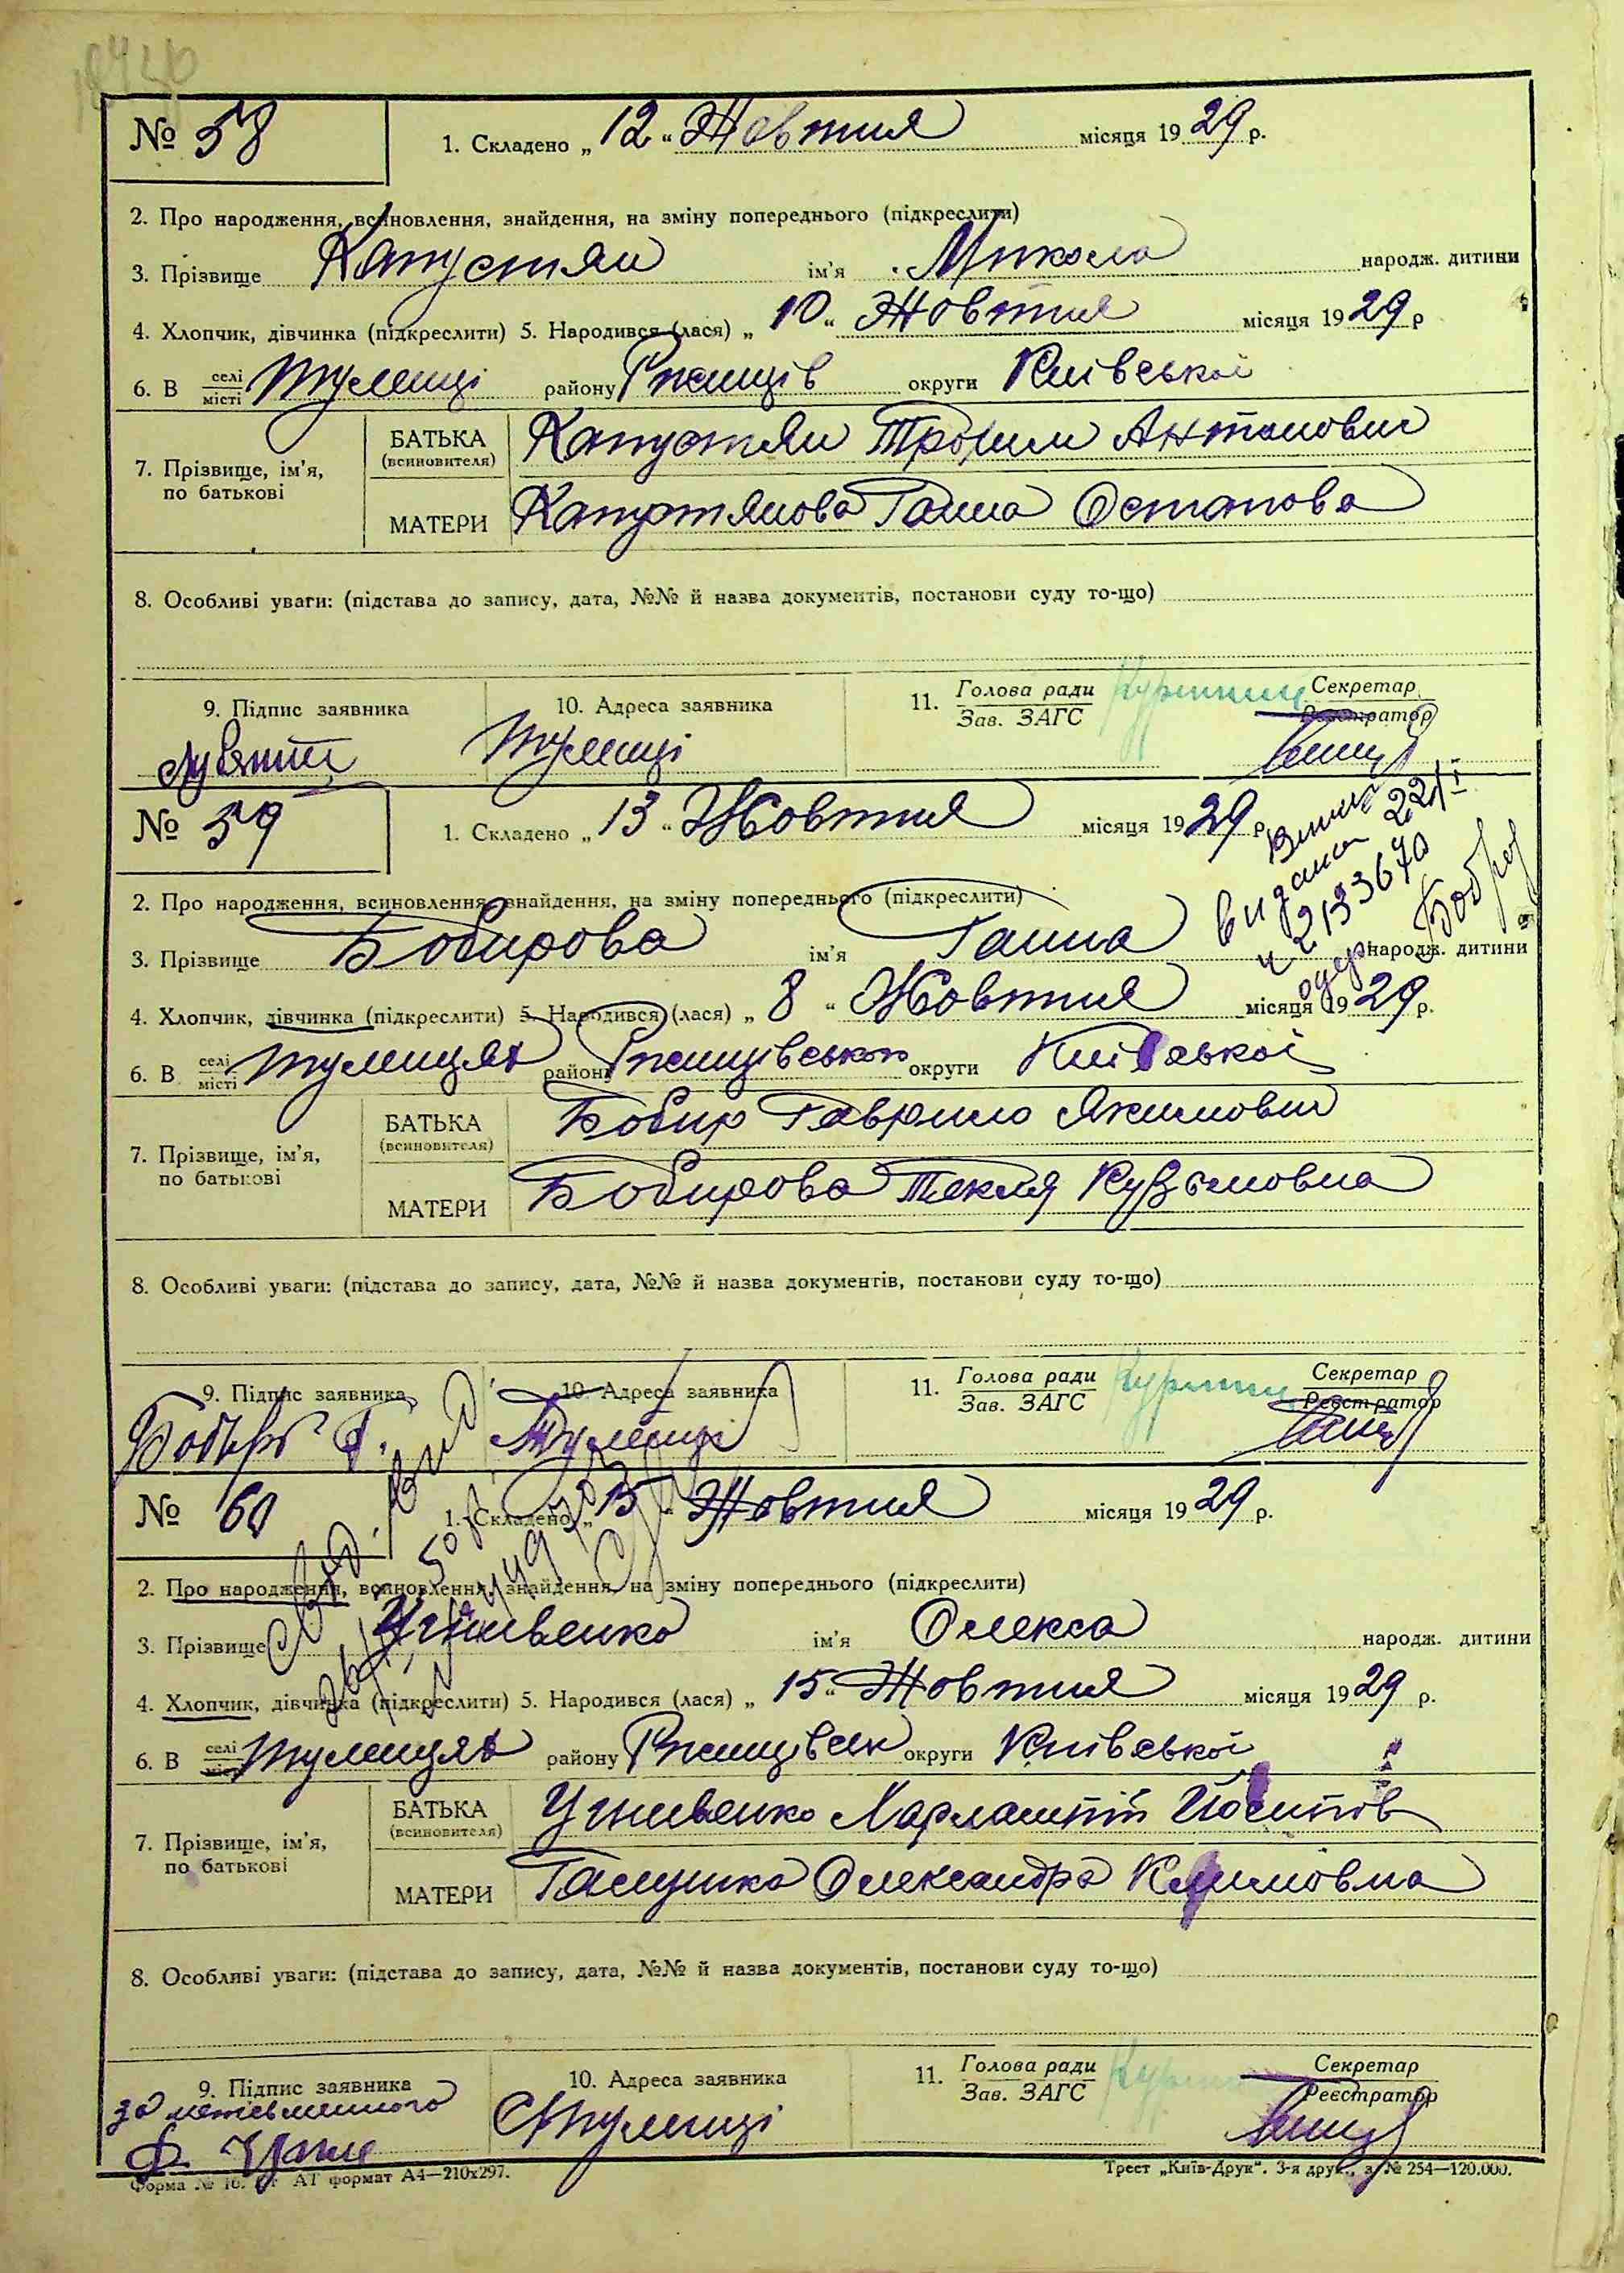 № 58
1. Складено „ 12 “ Жовтня місяця 1929 р.
2. Про народження, всиновлення, знайдення, на зміну попереднього (підкреслити)
3. Прізвище Капустян ім'я Микола народж. дитини
4. Хлопчик, дівчинка (підкреслити) 5. Народився (лася) „ 10 “ Жовтня місяця 1929 р
6. В селі місті Тулинці району Ржищів округи Київської
7. Прізвище, ім'я, по батькові
БАТЬКА (всиновителя) Капустян Трохим Антонович
МАТЕРИ Капустянова Ганна Остапова
8. Особливі уваги: (підстава до запису, дата, №№ й назва документів, постанови суду то-що)
9. Підпис заявника
10. Адреса заявника
11. Голова ради Зав. ЗАГС
Секретар Реєстратор
Тулинці
№ 59
1. Складено „ 13 “ Жовтня місяця 1929 р.
видана
2133670
2. Про народження, всиновлення, знайдення, на зміну попереднього (підкреслити)
3. Прізвище Бобирова ім'я Ганна народж. дитини
4. Хлопчик, дівчинка (підкреслити) 5. Народився (лася) „ 8 “ Жовтня місяця 1929 р.
6. В селі місті Тулинцях району Ржищівського округи Київської
7. Прізвище, ім'я, по батькові
БАТЬКА (всиновителя) Бобир Гаврило Якимович
МАТЕРИ Бобирова Текля Кузьмовна
8. Особливі уваги: (підстава до запису, дата, №№ й назва документів, постанови суду то-що)
9. Підпис заявника
10. Адреса заявника
11. Голова ради Зав. ЗАГС
Секретар Реєстратор
Тулинці
№ 60
1. Складено „ 15 “ Жовтня місяця 1929 р.
2. Про народження, всиновлення, знайдення, на зміну попереднього (підкреслити)
3. Прізвище Угнивенко ім'я Олекса народж. дитини
4. Хлопчик, дівчинка (підкреслити) 5. Народився (лася) „ 15 “ Жовтня місяця 1929 р.
6. В селі місті Тулинцях району Ржищівськ округи Київської
7. Прізвище, ім'я, по батькові
БАТЬКА (всиновителя) Угнивенко Харлампій Йосипов
МАТЕРИ Галушка Олександра Климовна
8. Особливі уваги: (підстава до запису, дата, №№ й назва документів, постанови суду то-що)
9. Підпис заявника
10. Адреса заявника
11. Голова ради Зав. ЗАГС
Секретар Реєстратор
за неписьменного
С Тулинці
Форма № 10. АТ формат А4—210x297.
Трест „Київ-Друк“. 3-я друк., з. № 254—120.000.